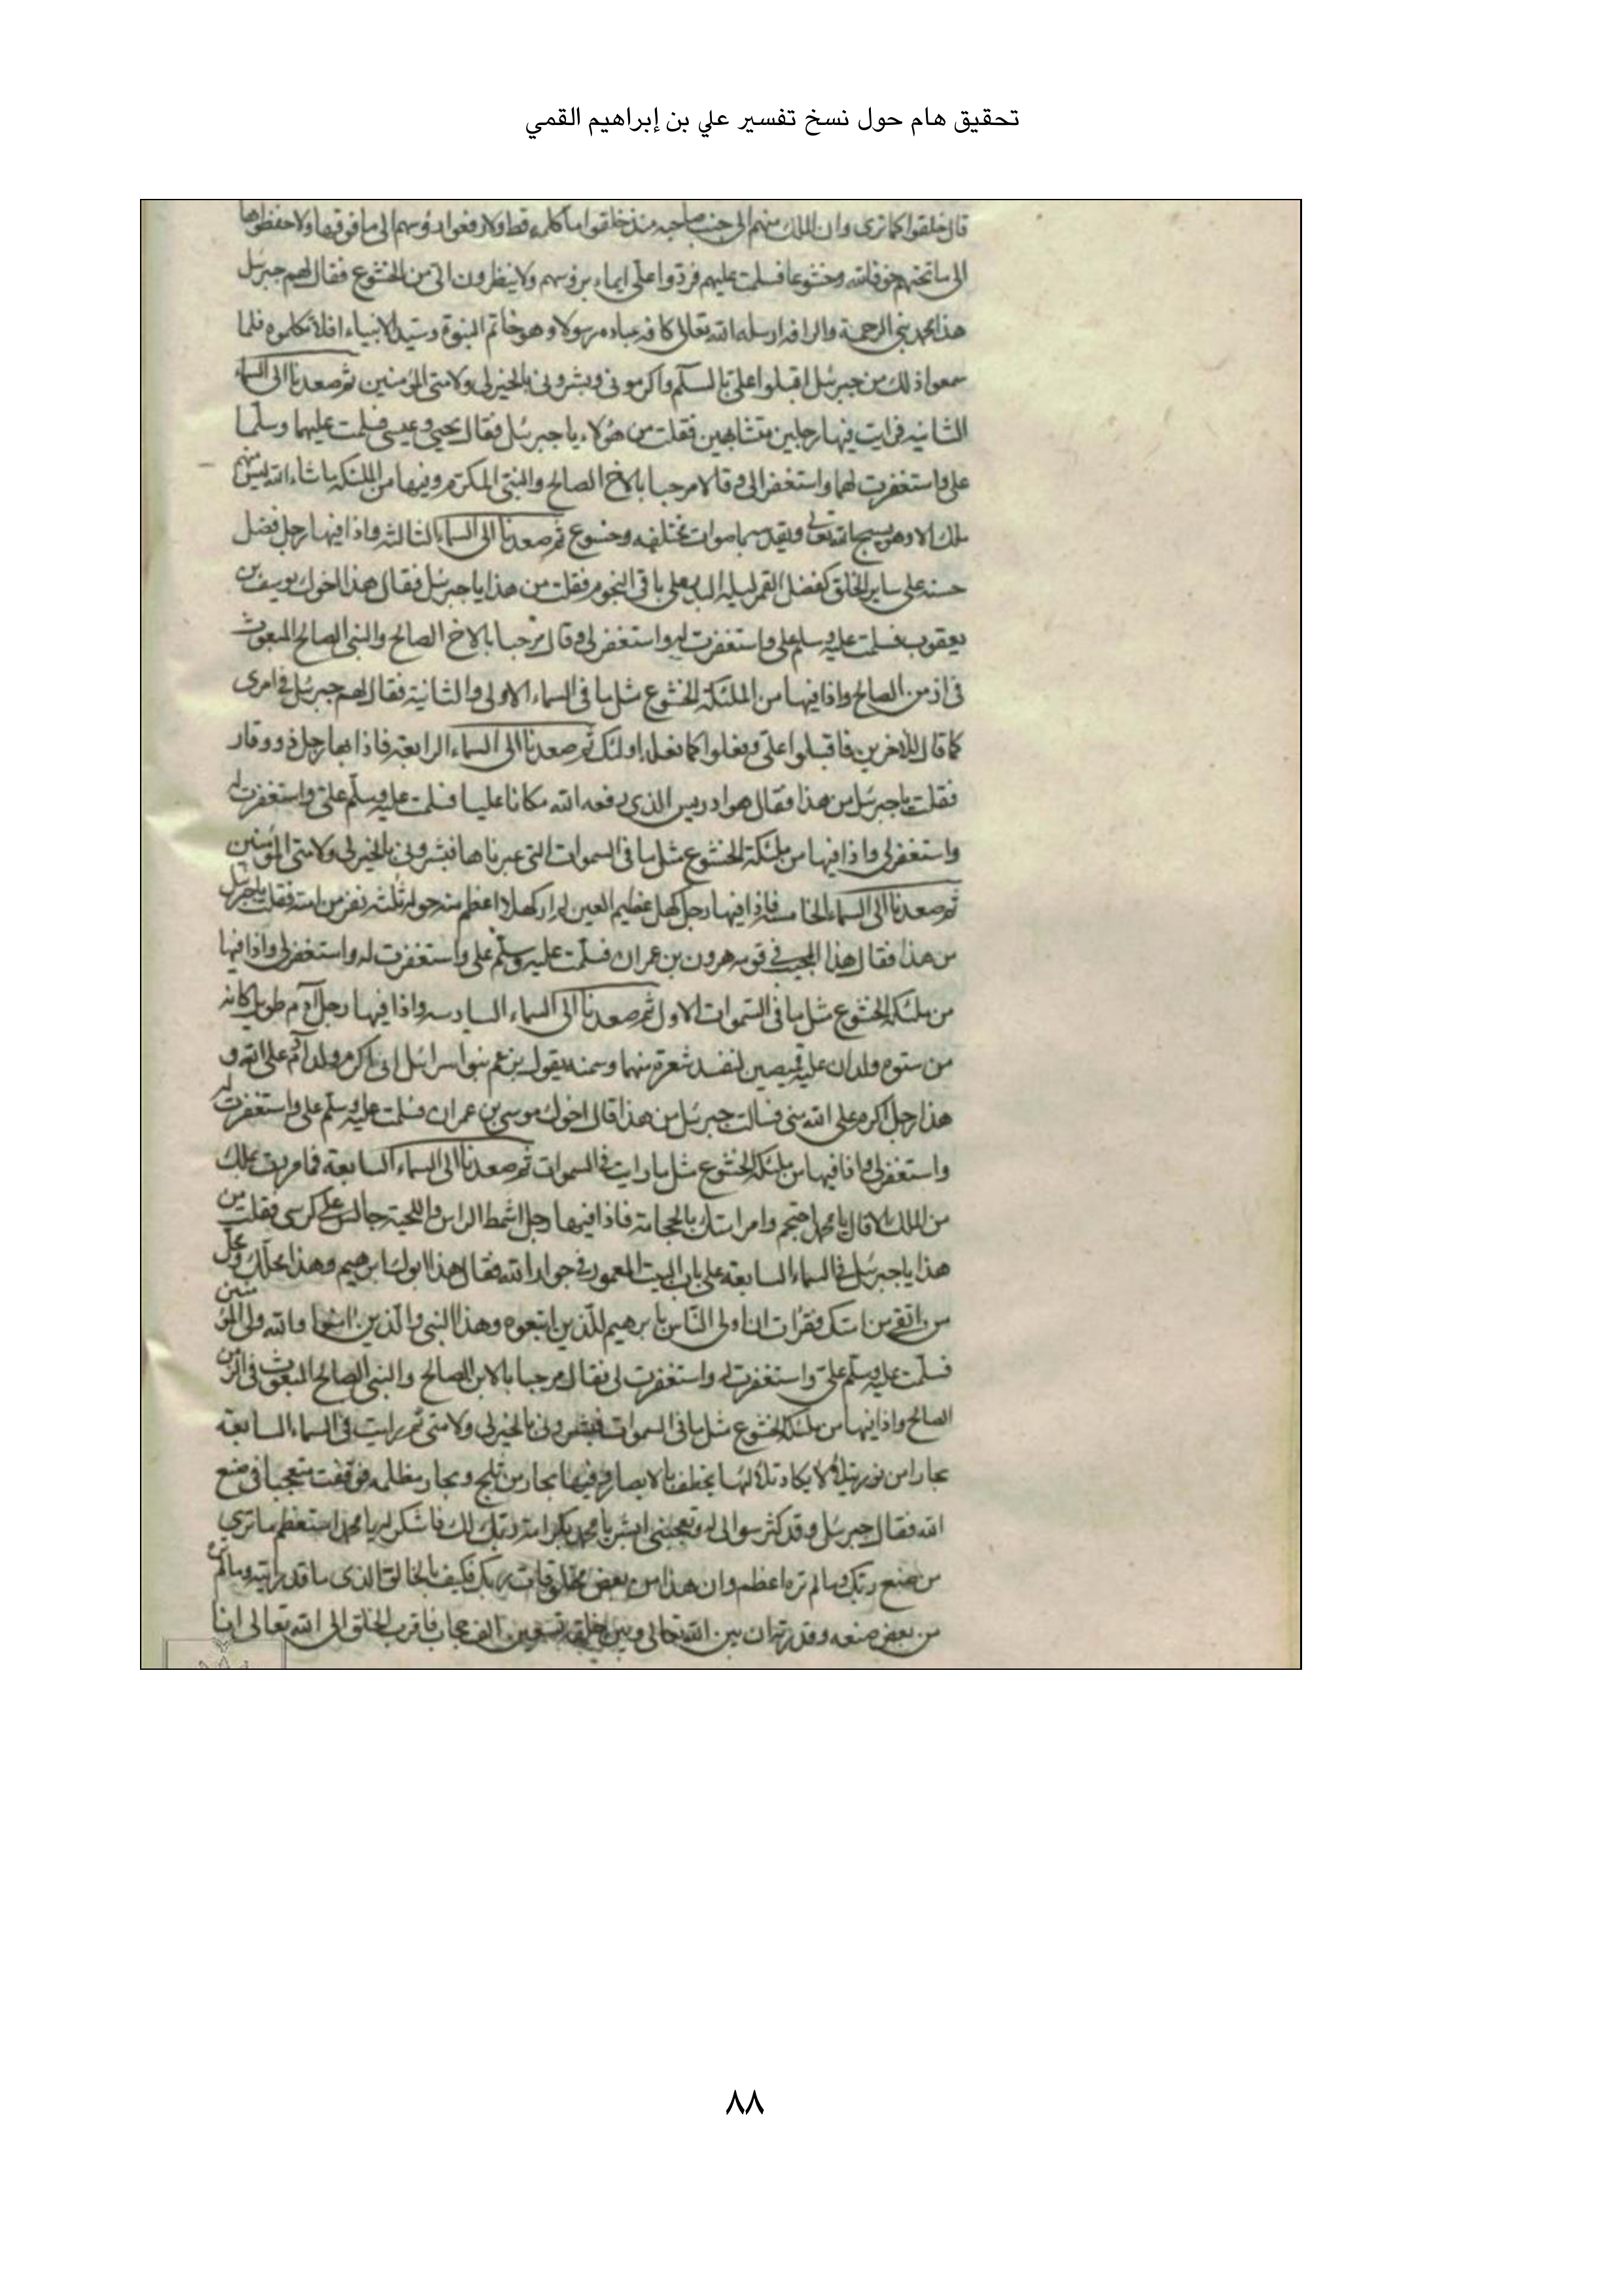 تحقيق هام حول نسخ تفسير علي بن إبراهيم القمي
قال خلقوا كما ترى وان الملك منهم الى جنب صاحبه منذ خلقوا ما كلمه قط ولا رفعوا رؤسهم الى ما فوقها ولا خفضوها
الى ما تحتهم خوفا لله وخشوعا فسلمت عليهم فردوا على ايماء برؤسهم ولا ينظرون الى من الخشوع فقال لهم جبرئيل
هذا محمد نبى الرحمة والرافه ارسله الله تعالى كافه عباده رسولا وهو خاتم النبوة وسيد الانبياء افلا تكلموه فلما
سمعوا ذلك من جبرئيل اقبلوا على بالسلم واكرمونى وبشرونى بالخير لى ولامتى المؤمنين ثم صعدنا الى السماء
الثانيه فرايت فيها رجلين متشابهين فقلت من هؤلاء يا جبرئيل فقال يحيى وعيسى فسلمت عليهما وسلما
على واستغفرت لهما واستغفرا لى وقالا مرحبا بالاخ الصالح والنبى المكرم وفيها من الملئكه ما شاء الله ليس منهم
ملك الا وهو يسبح الله تعالى ويقدسه باصوات مختلفه وخشوع ثم صعدنا الى السماء الثالثه واذا فيها رجل فضل
حسنه على ساير الخلق كفضل القمر ليله البدر على باقى النجوم فقلت من هذا يا جبرئيل فقال هذا اخوك يوسف بن
يعقوب فسلمت عليه وسلم على واستغفرت له واستغفر لى وقال مرحبا بالاخ الصالح والنبى الصالح المبعوث
فى الزمن الصالح واذا فيها من الملئكة الخشوع مثل ما فى السماء الاولى والثانية فقال لهم جبرئيل فى امرى
كما قال للاخرين فاقبلوا على وفعلوا كما فعل اولئك ثم صعدنا الى السماء الرابعة فاذا بها رجل ذو وقار
فقلت يا جبرئيل من هذا فقال هو ادريس الذى رفعه الله مكانا عليا فسلمت عليه وسلم على واستغفرت له
واستغفر لى واذا فيها من ملئكة الخشوع مثل ما فى السموات التى عبرناها فبشرونى بالخير لى ولامتى المؤمنين
ثم صعدنا الى السماء الخامسه فاذا فيها رجل كهل عظيم العين لم ار كهلا اعظم منه حوله ثلثه نفر من امته فقلت يا جبرئيل
من هذا فقال هذا المجيب فى قومه هرون بن عمران فسلمت عليه وسلم على واستغفرت له واستغفر لى واذا فيها
من ملئكه الخشوع مثل ما فى السموات الاول ثم صعدنا الى السماء السادسه واذا فيها رجل آدم طويل كانه
من ولد ان عليه قميصين لنفد شعره منهما وسمعته يقول بنو اسرائيل انى اكرم ولد آدم على الله و
هذا رجل اكرم على الله منى فسالت جبرئيل من هذا قال اخوك موسى بن عمران فسلمت عليه وسلم على واستغفرت له
واستغفر لى واذا فيها من ملئكة الخشوع مثل ما رايت فى السموات ثم صعدنا الى السماء السابعة فما مررت بملك
من الملئكة الا قال يا محمد احتجم وامر امتك بالحجامة فاذا فيها رجل اشمط الراس واللحية جالس على كرسى فقلت من
هذا يا جبرئيل فى السماء السابعه على باب البيت المعمور فى جوار الله فقال هذا ابوك ابرهيم وهذا محلك ومحل
من اتقى من امتك فقرات ان اولى الناس بابرهيم للذين اتبعوه وهذا النبى والذين امنوا والله ولى المؤمنين
فسلمت عليه وسلم على واستغفرت له واستغفرت لى فقال مرحبا بالابن الصالح والنبى الصالح المبعوث فى الزمن
الصالح واذا فيها من ملئكه الخشوع مثل ما فى السموات فبشرونى بالخير لى ولامتى ثم رايت فى السماء السابعة
بحارا من نور يتلألأ يكاد تلألؤها يخطف بالابصار وفيها بحار من ثلج وبحار مظلمه فوقفت متعجبا فى صنع
الله فقال جبرئيل وقد كثر سوالى له وتعجبنى ابشر يا محمد بكرامة ربك لك فاشكر له يا محمد استعظم ما ترى
من صنع ربك وما لم تره اعظم وان هذا من بعض مخلوقات ربك فكيف بالخالق الذى ما قد رايته وما لم تره
من بعض صنعه وقدرته ان بين الله تعالى وبين خلقه تسعين الف حجاب فاقرب الخلق الى الله تعالى انا
٨٨